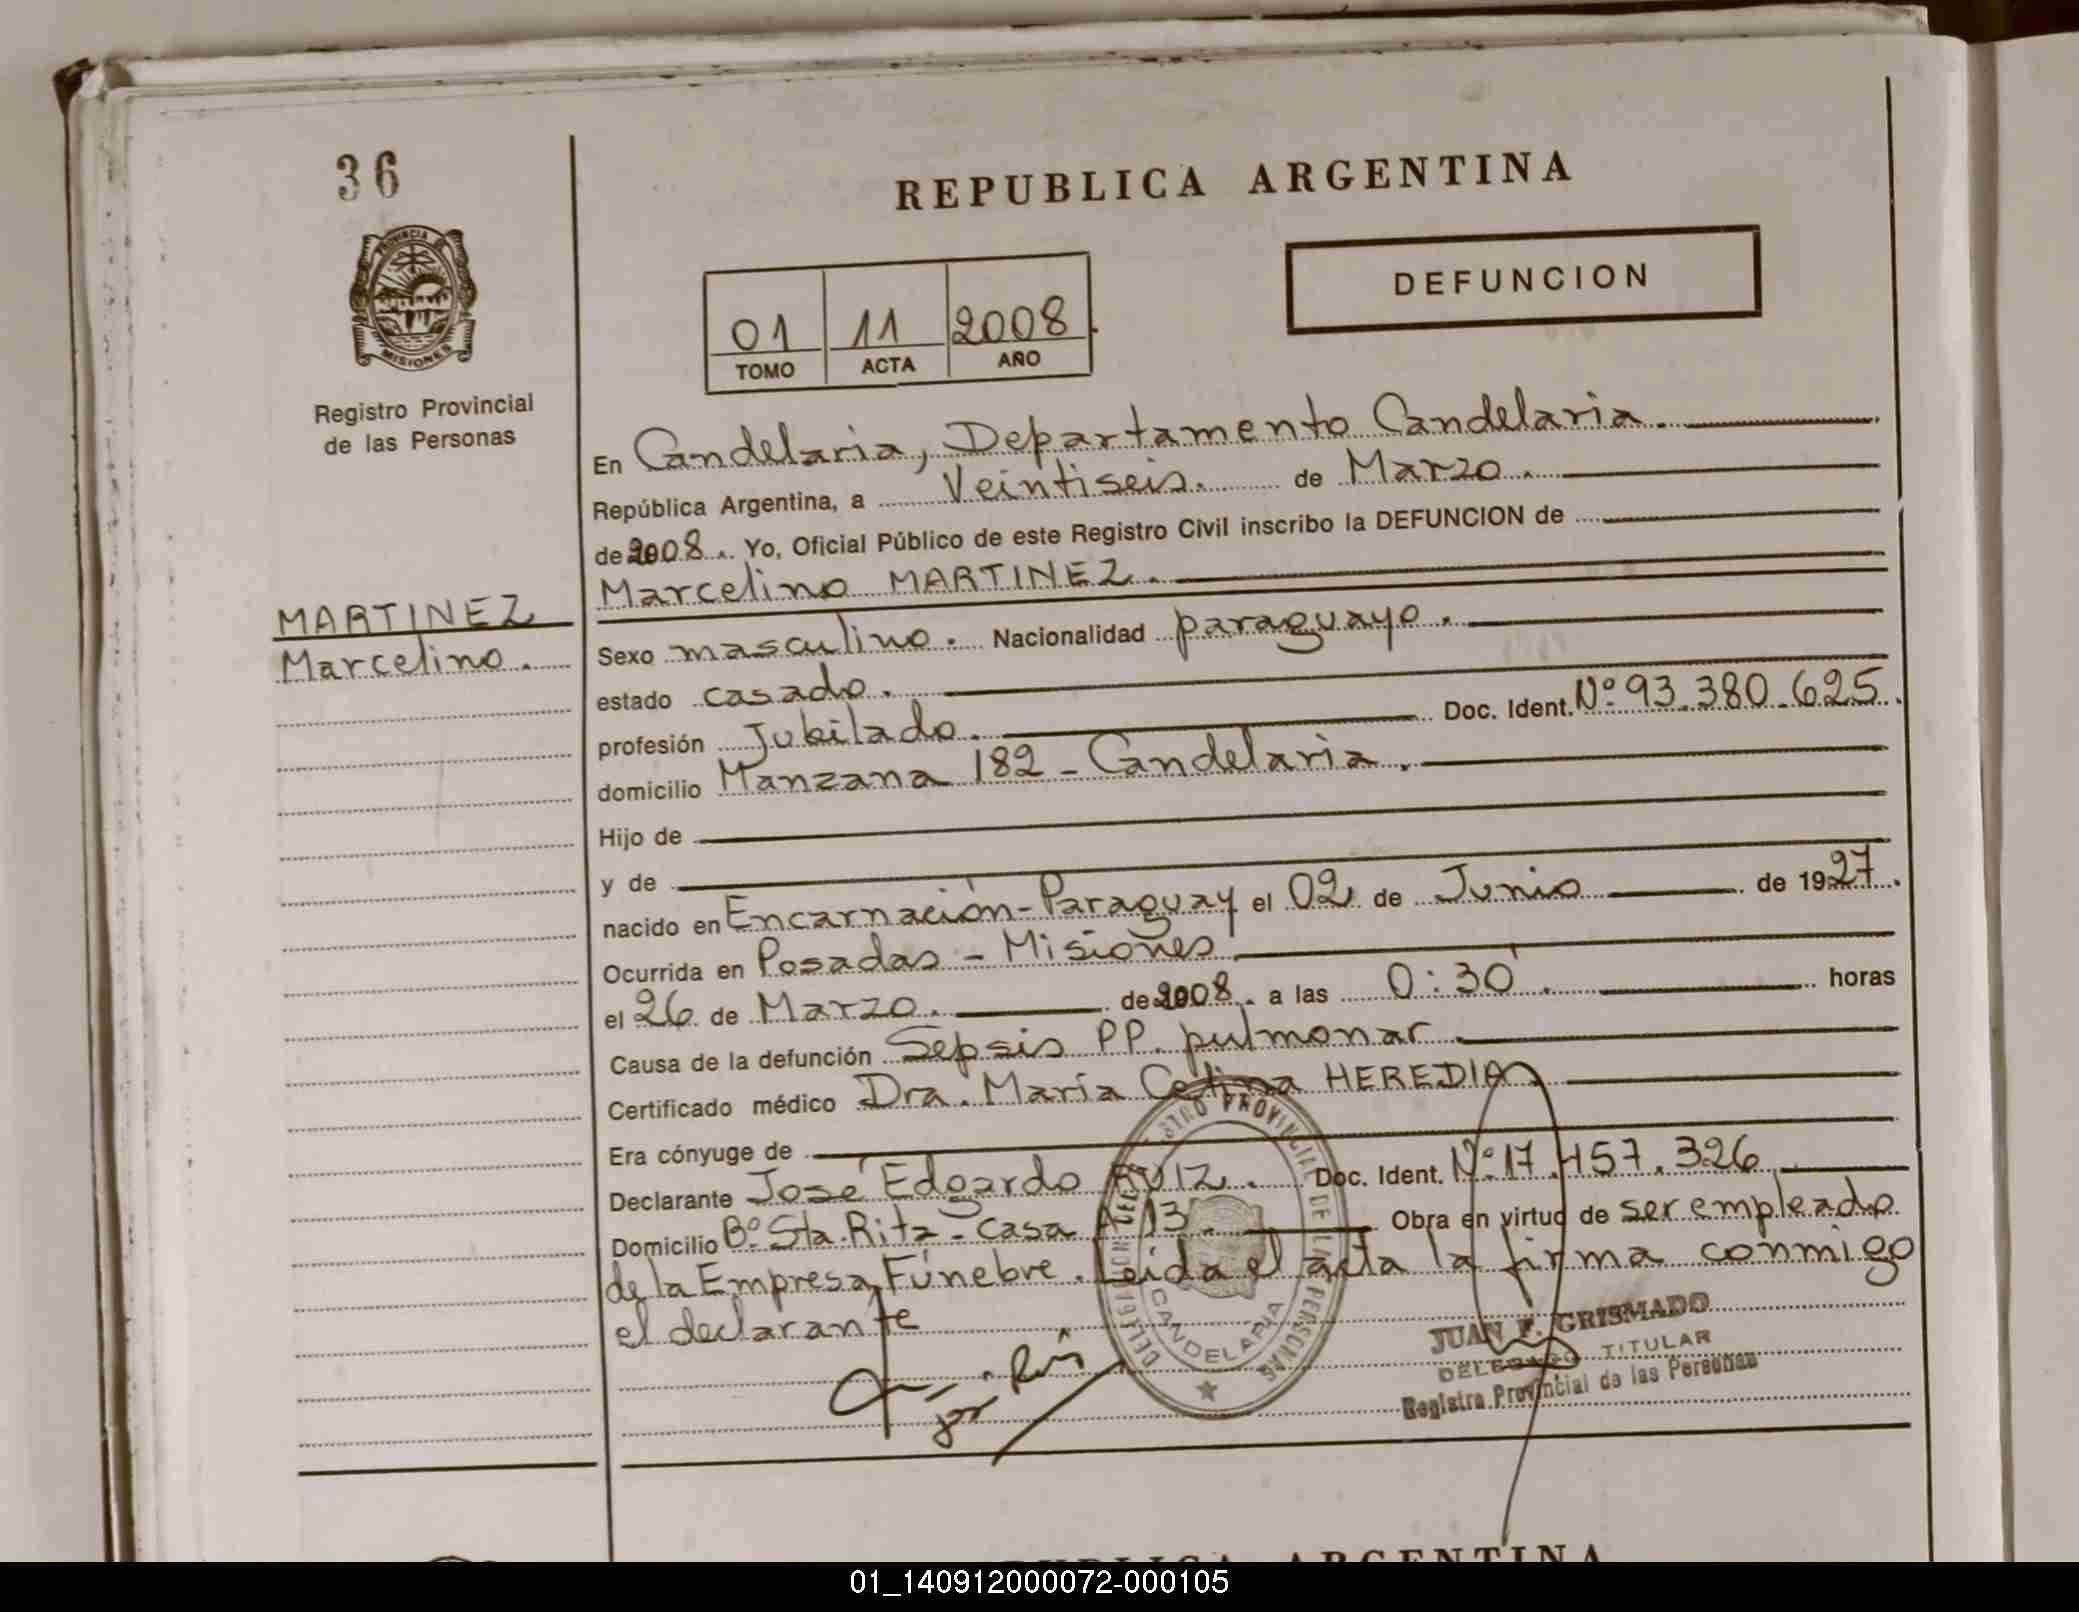 36
PROVINCIA DE
MISIONES
Registro Provincial
de las Personas
MARTINEZ
Marcelino.
REPUBLICA ARGENTINA
DEFUNCION
01 11 2008
TOMO ACTA AÑO
En Candelaria, Departamento Candelaria.
República Argentina, a Veintiseis. de Marzo.
de 2008. Yo, Oficial Público de este Registro Civil inscribo la DEFUNCION de
Marcelino MARTINEZ.
Sexo masculino. Nacionalidad paraguayo.
estado casado.
profesión Jubilado. Doc. Ident. Nº 93.380.625.
domicilio Manzana 182 - Candelaria.
Hijo de
y de
nacido en Encarnación - Paraguay el 02 de Junio de 1927.
Ocurrida en Posadas - Misiones
el 26 de Marzo. de 2008. a las 0:30'. horas
Causa de la defunción Sepsis PP. pulmonar
Certificado médico Dra. María Celina HEREDIA
Era cónyuge de
Declarante José Edgardo RUIZ. Doc. Ident. Nº 17.457.326
Domicilio Bº Sta. Rita - Casa A 13. Obra en virtud de ser empleado
de la Empresa Fúnebre. Leída el acta la firma conmigo
el declarante
DELEGACION DEL REGISTRO PROVINCIAL DE LAS PERSONAS
CANDELARIA
JUAN F. GRISMADO
DELEGADO TITULAR
Registro Provincial de las Personas
REPUBLICA ARGENTINA
01_140912000072-000105